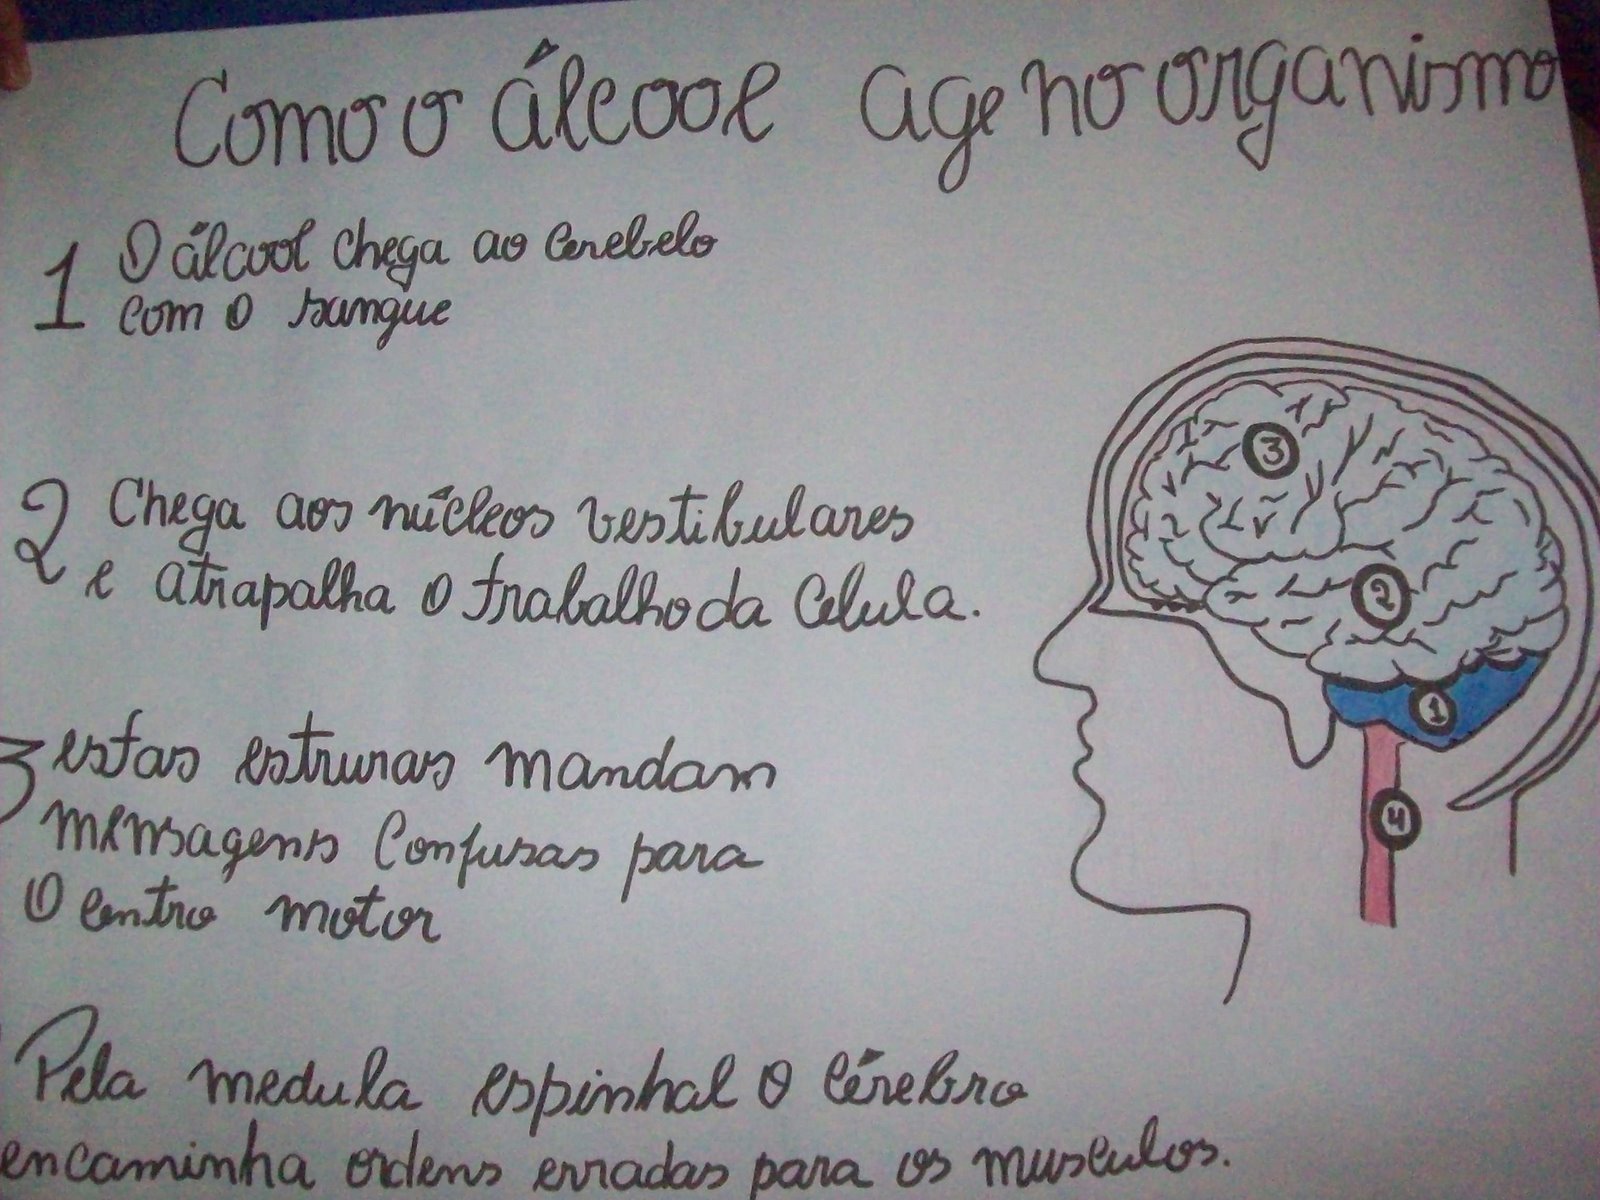 Como o álcool age no organismo
1 O álcool chega ao cerebelo
com o sangue
2 Chega aos núcleos vestibulares
e atrapalha o trabalho da celula.
3 estas estruras mandam
mensagens confusas para
o centro motor
Pela medula espinhal o cérebro
encaminha ordens erradas para os musculos.
3
2
1
4